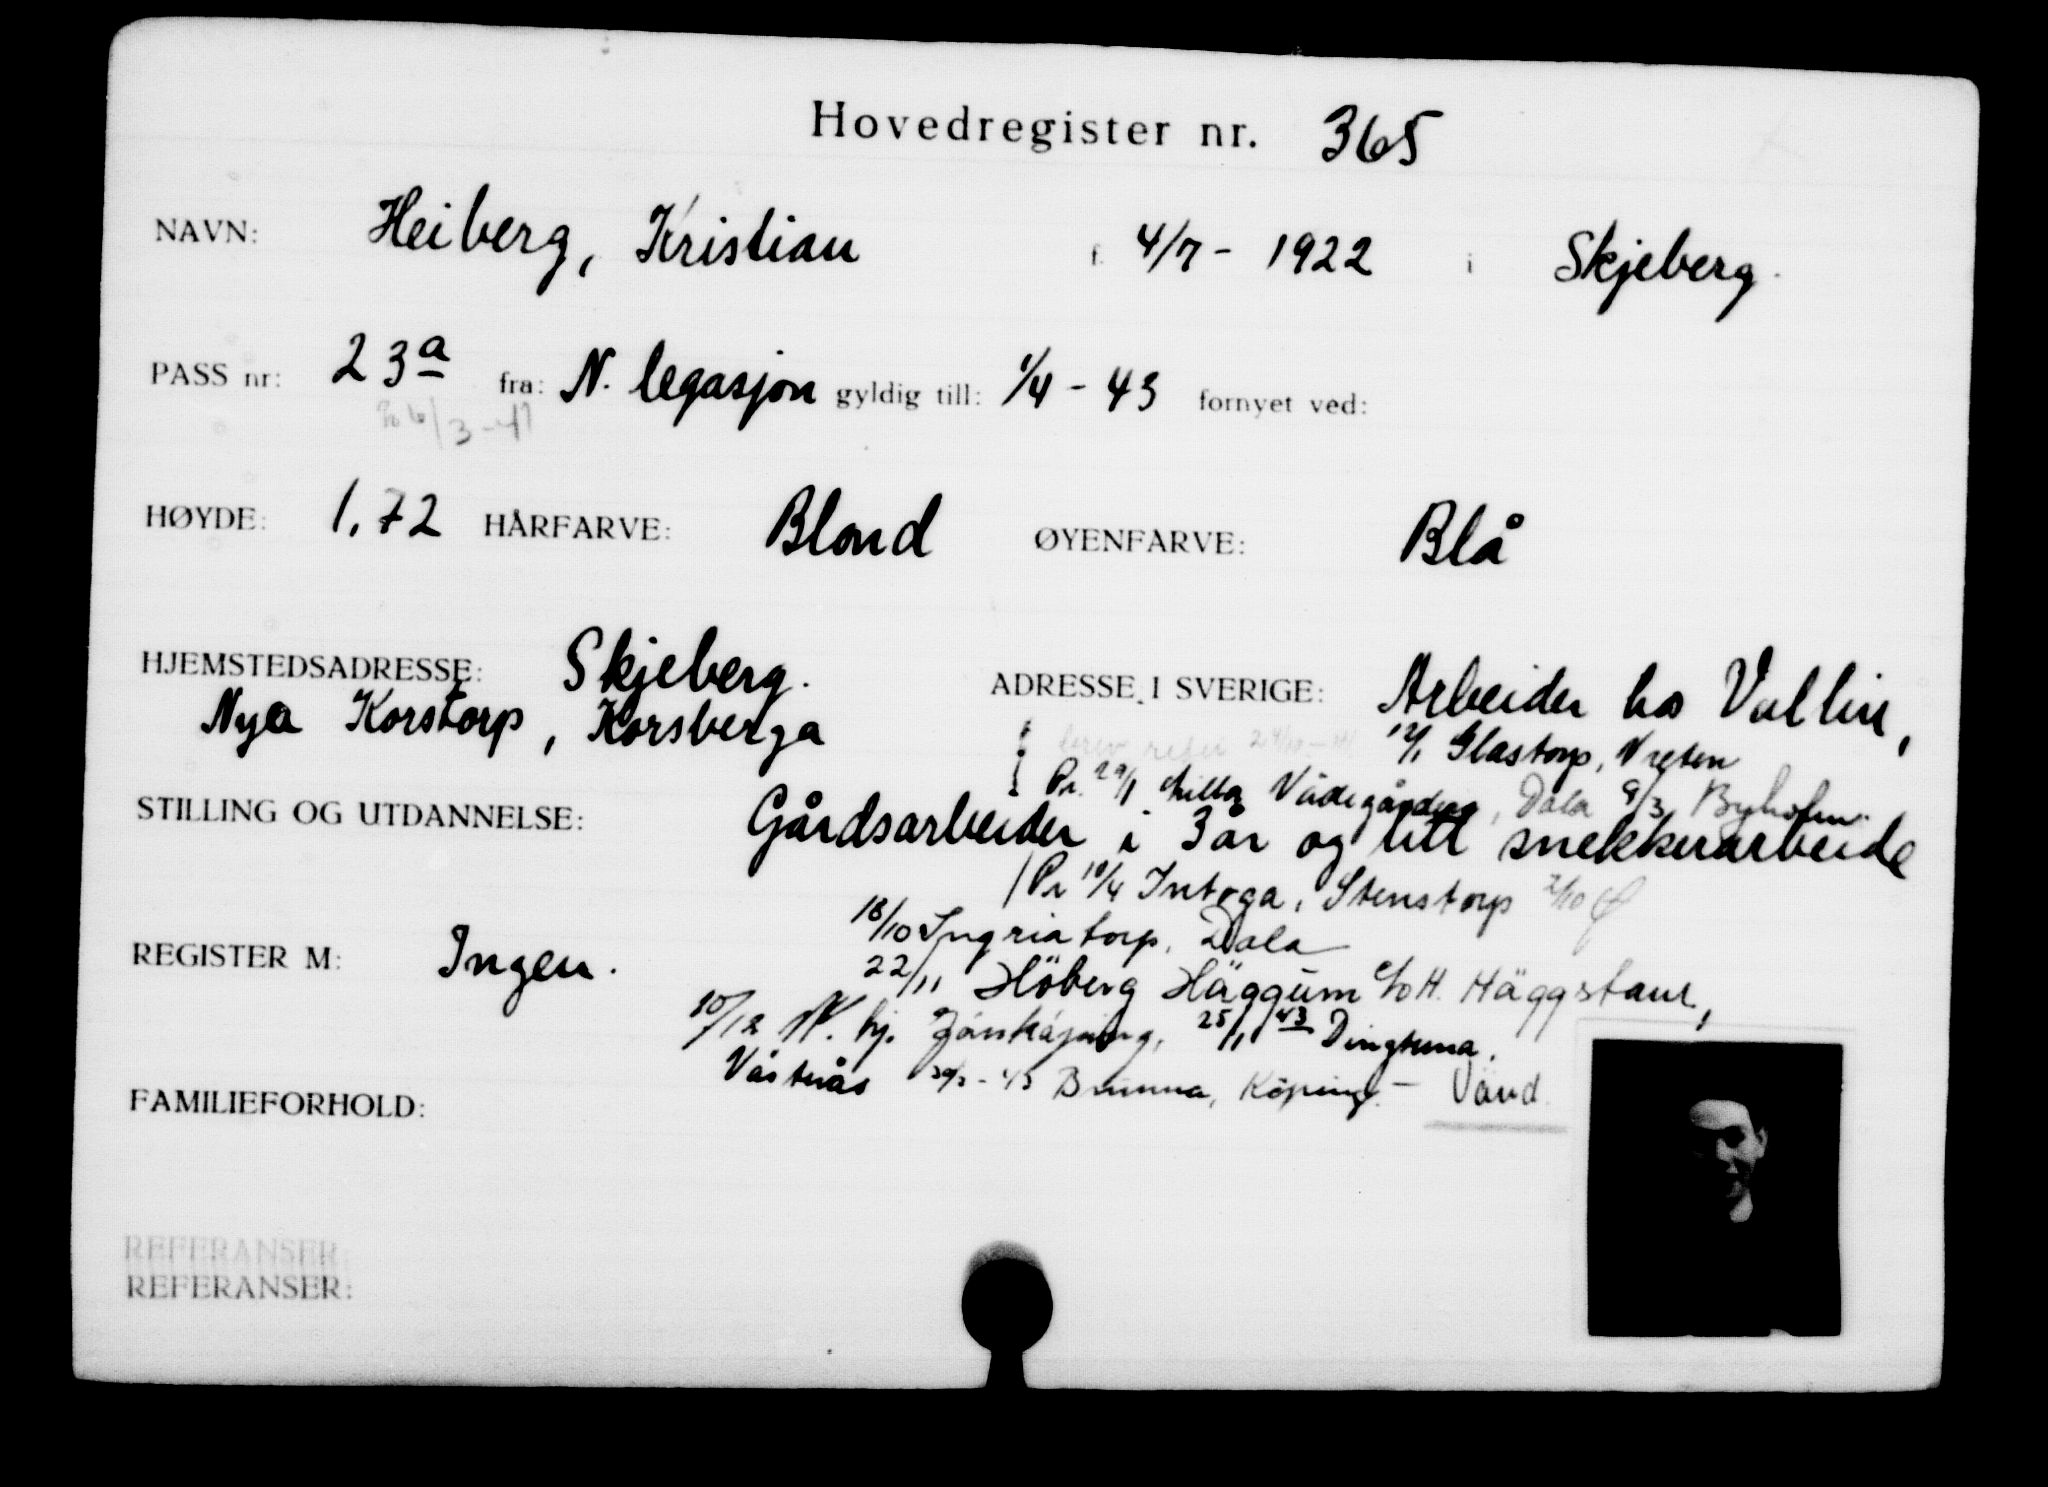 Hovedregister nr. 365
NAVN: Heiberg, Kristian f. 4/7 - 1922 i Skjeberg.
PASS nr: 23a fra: N. legasjon gyldig till: 1/4 - 43 fornyet ved:
/3 - 41
HØYDE: 1.72 HÅRFARVE: Blond ØYENFARVE: Blå
HJEMSTEDSADRESSE: Skjeberg. ADRESSE I SVERIGE: Arbeider hos Vallin,
Nya Korstorp, Korsberga
12/1 Glastorp, Vreten
Pr. 29/1 Lilla Vädegården, Dala 9/3 Byholm.
STILLING OG UTDANNELSE: Gårdsarbeider i 3 år og litt snekkerarbeide
Pr 10/4 Intoga, Stenstorp 2/10
18/10 Ingriatorp, Dala
REGISTER M: Ingen.
22/11 Höberg Häggum c/o H. Häggstam,
10/12 N. hj. Jönköping, 25/1 43 Dingtuna.
Västerås - 43 Brunna, Köping. - Vänd.
FAMILIEFORHOLD:
REFERANSER:
REFERANSER: